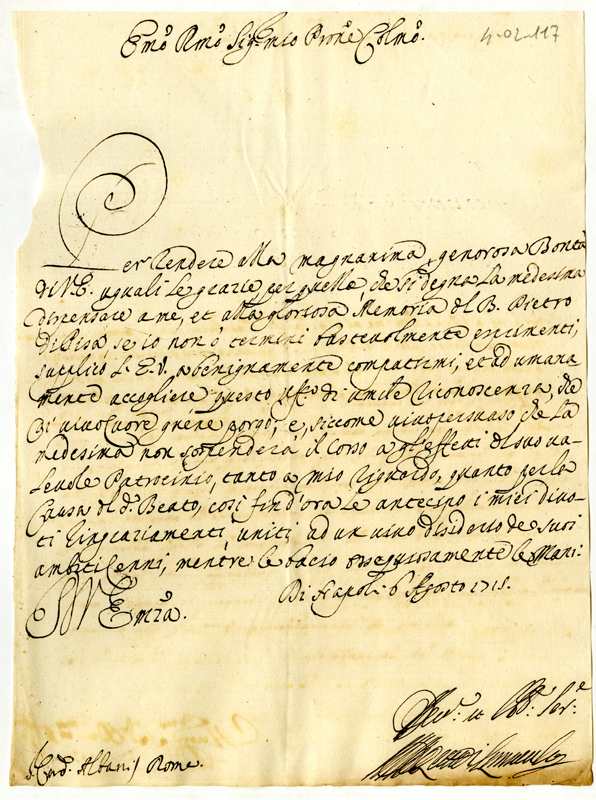 Emo Rmo Sig.r mio Prone Colmo.
4-02-117
Per rendere alla magnanima, generosa Bontà
di V.E. uguali le grazie per quelle, che si degna la medesima
dispensare a me, et alla gloriosa Memoria del B. Pietro
di Pisa, se io non ò termini bastevolmente esprimenti,
supplico L'E.V. a benignamente compatirmi, et ad umana
mente accogliere questo uff.o di umile riconoscenza, che
di vivo cuore gnene porgo; e, siccome vivo persuaso che la
medesima non sospenderà il corso a gl'effetti del suo va-
levole Patrocinio, tanto a mio riguardo, quanto per la
Causa del d.o Beato, così fin d'ora le antecipo i miei divo-
ti ringraziamenti, uniti ad un vivo disiderio de suoi
ambiti Cenni, mentre le bacio ossequiosamente le Mani.
Di V. Emza.
Di Napoli 6 Agosto 1718.
Ser.e
S. Card. Albani) Roma.